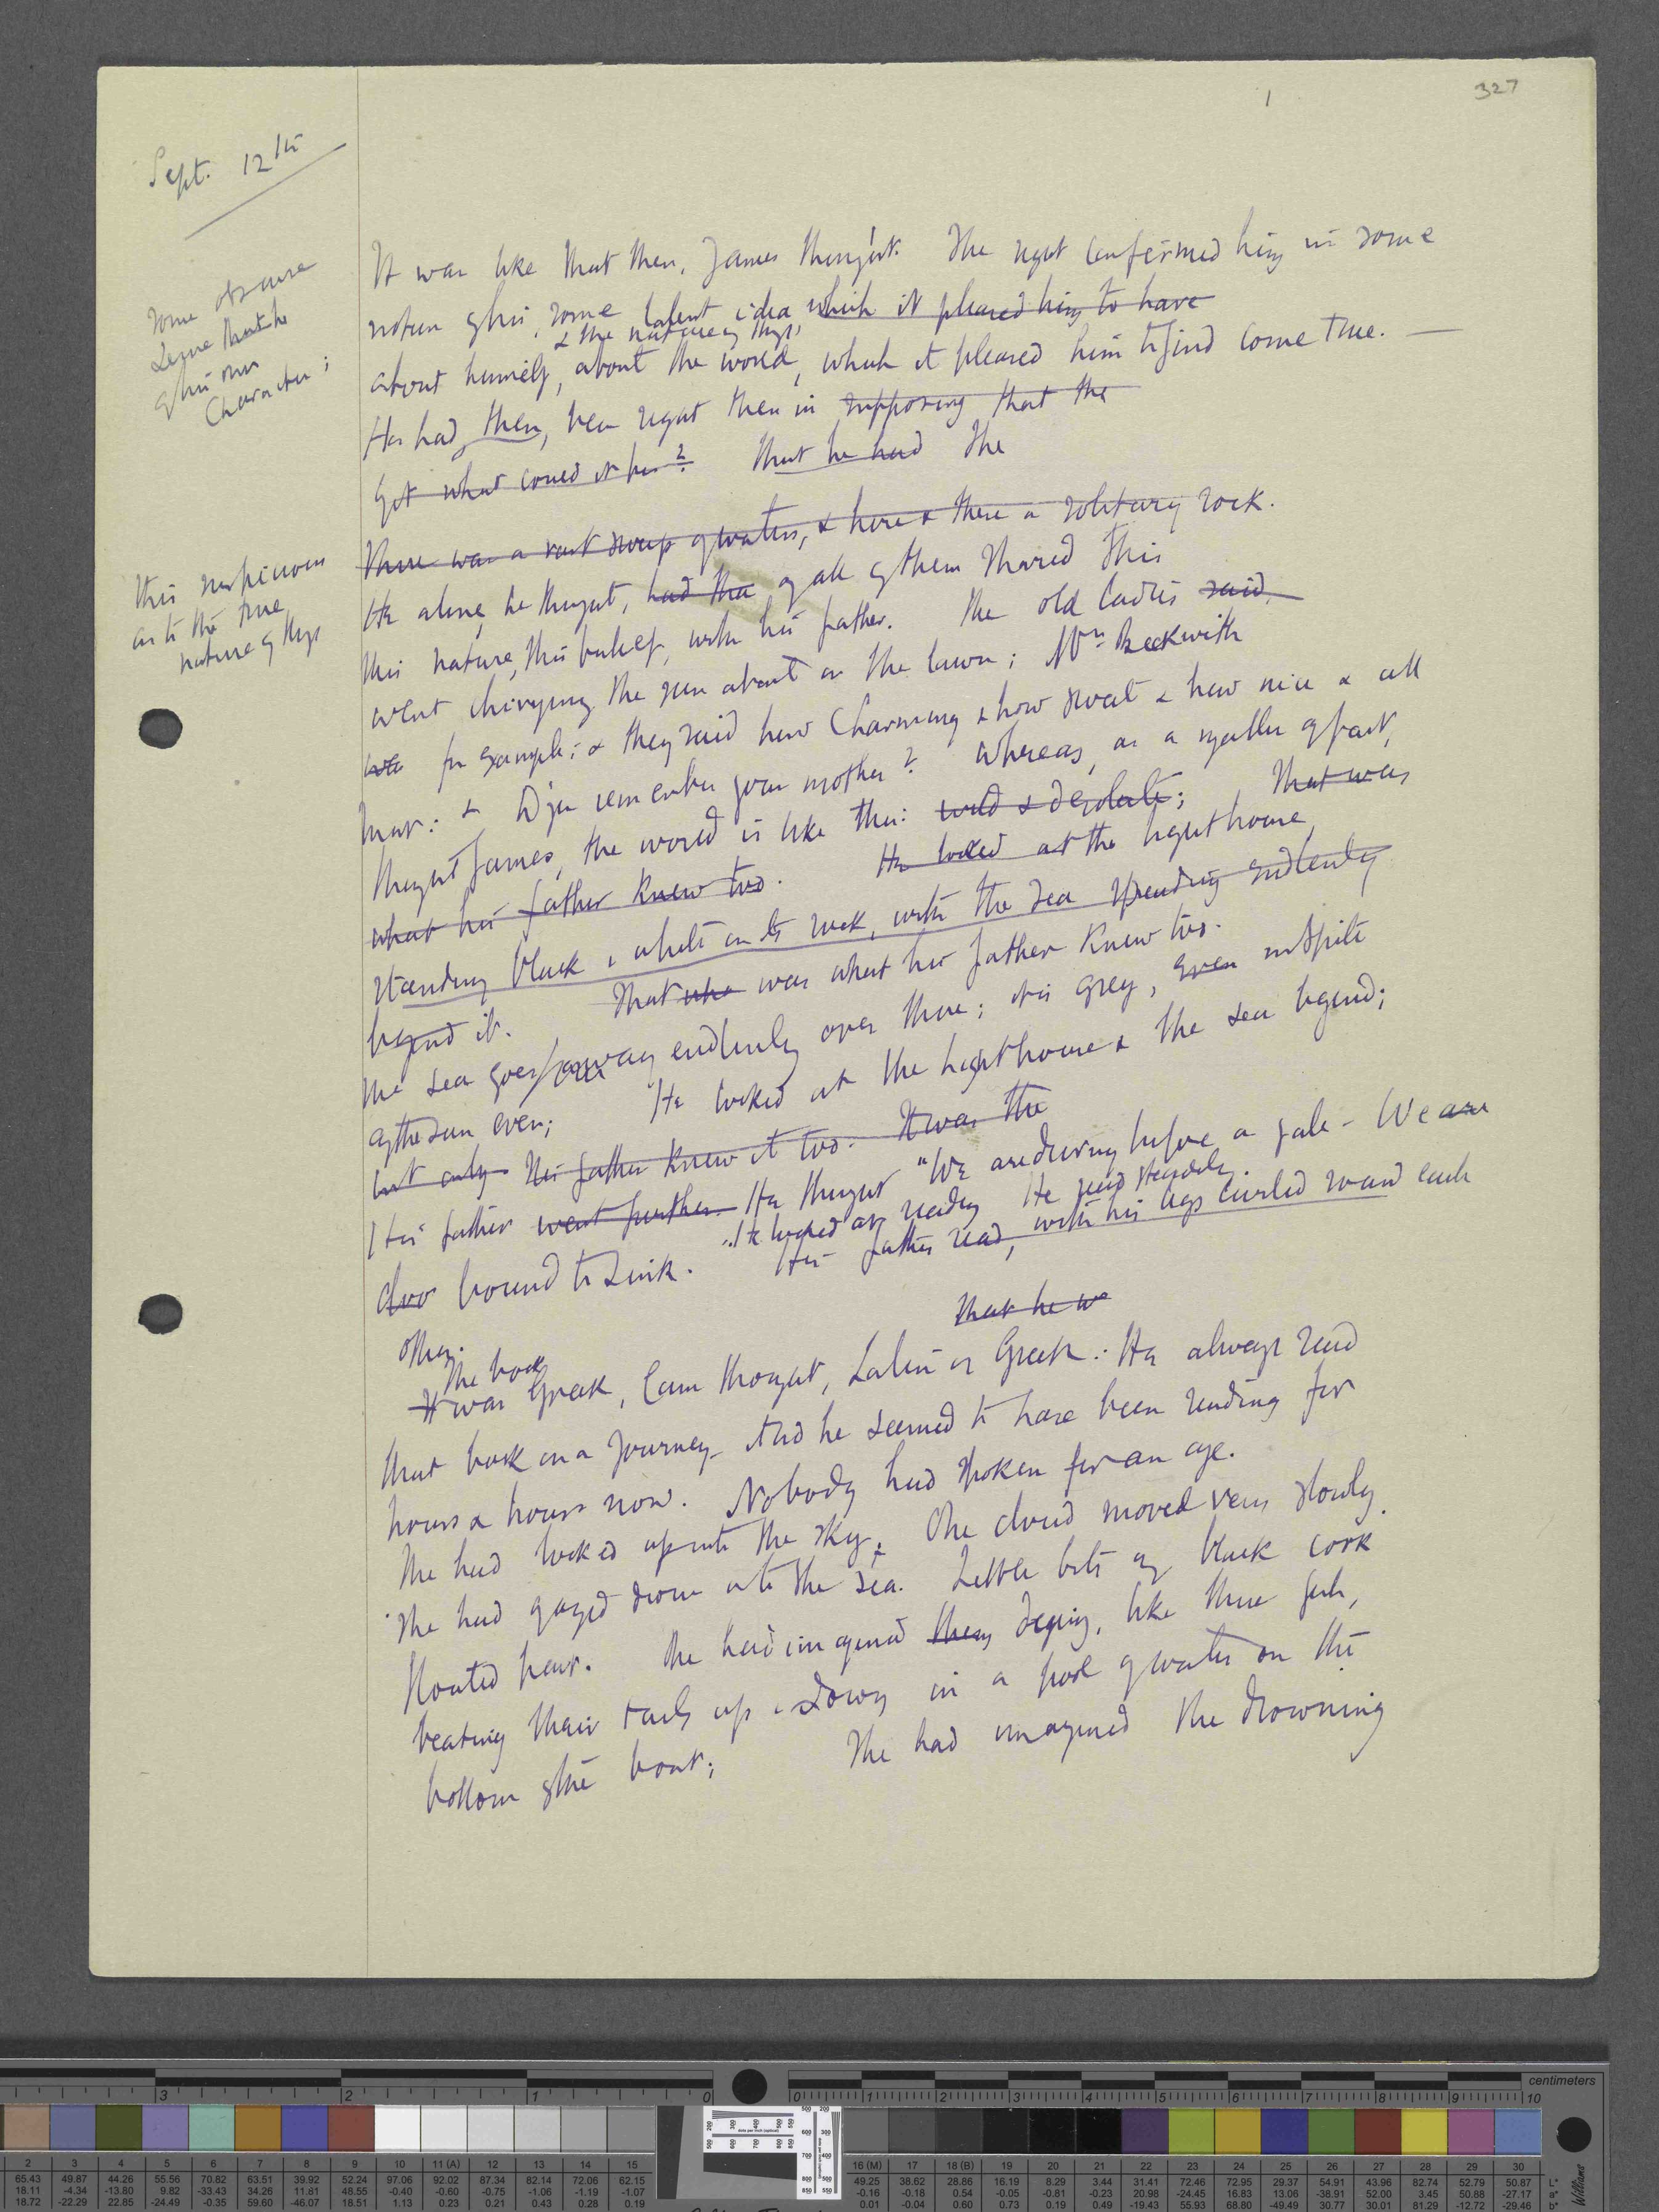 1
327
Sept. 12th
some obscure
sense that he
of his own
character;
It was like that then, James thought. The sight confirmed him in some
notion of his, some latent idea which it pleased him to have
& the nature of things,
about himself, about the world, which it pleased him to find come true. —
He had, then, been right then in supposing that the
Yet what could it be? That he had The
There was a vast sweep of waters, & here & there a solitary rock.
this suspicions
as to the true
nature of things
He alone, he thought, had tha of all of them shared this
this nature, this belief, with his father. The old ladies said,
went chirping the sun about on the lawn; Mrs Beckwith
was for example; & they said how charming & how sweet & how nice & all
that: & D'you remember your mother? Whereas, as a matter of fact,
thought James, the world is like this: wild & desolate; That was
what his father knew too. He looked at the lighthouse
standing black & white on its rock, with the sea spreading endlessly
beyond it. That wha was what his father knew too.
The sea goes away endlessly over there; it is grey, even in spite
of the sun even; He looked at the lighthouse & the sea beyond;
but only His father knew it too. It was the
His father went further. He thought "We are driving before a gale - We are
"He looked at reading He read steadily.
bound to sink. His father read, with his legs curled round each
other.
that he w
The book
It was Greek, Cam thought, Latin or Greek: He always read
that book on a journey. And he seemed to have been reading for
hours & hours now. Nobody had spoken for an age.
She had looked up into the sky; One cloud moved very slowly.
She had gazed down into the sea. Little bits of black cork
floated past. She had imagined them dying, like three fish,
beating their tails up & down in a pool of water on the
bottom of the boat; She had imagined the drowning
centimeters